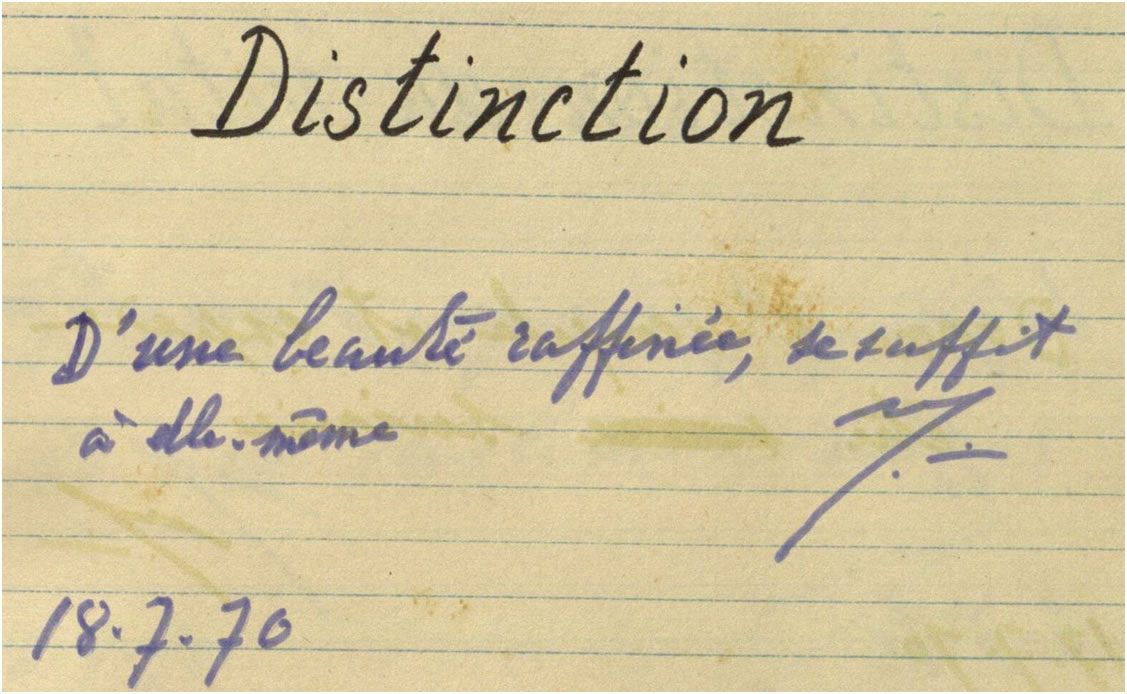 Distinction
D'une beauté raffinée, se suffit
à elle-même
18.7.70